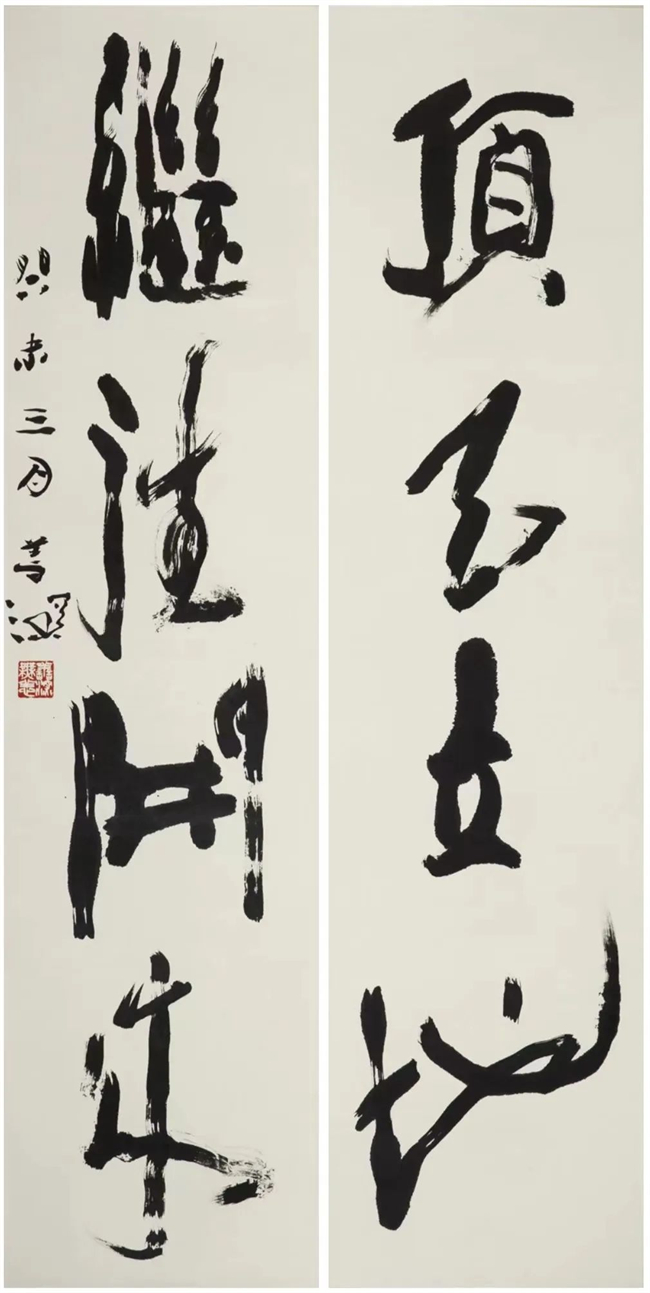 頂天立地
繼往開來
癸未三月